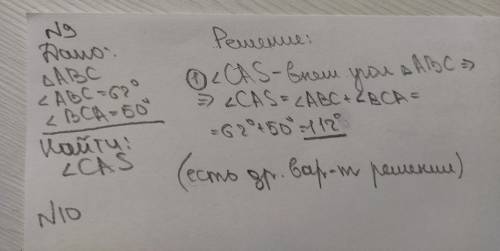 N9
Дано:
△ABC
∠ABC=62°
∠BCA=50°
Найти:
∠CAS
N10
Решение:
① ∠CAS-внеш угол △ABC ⇒
⇒ ∠CAS=∠ABC+∠BCA=
=62°+50°=112°
(есть др. вар-т решения)